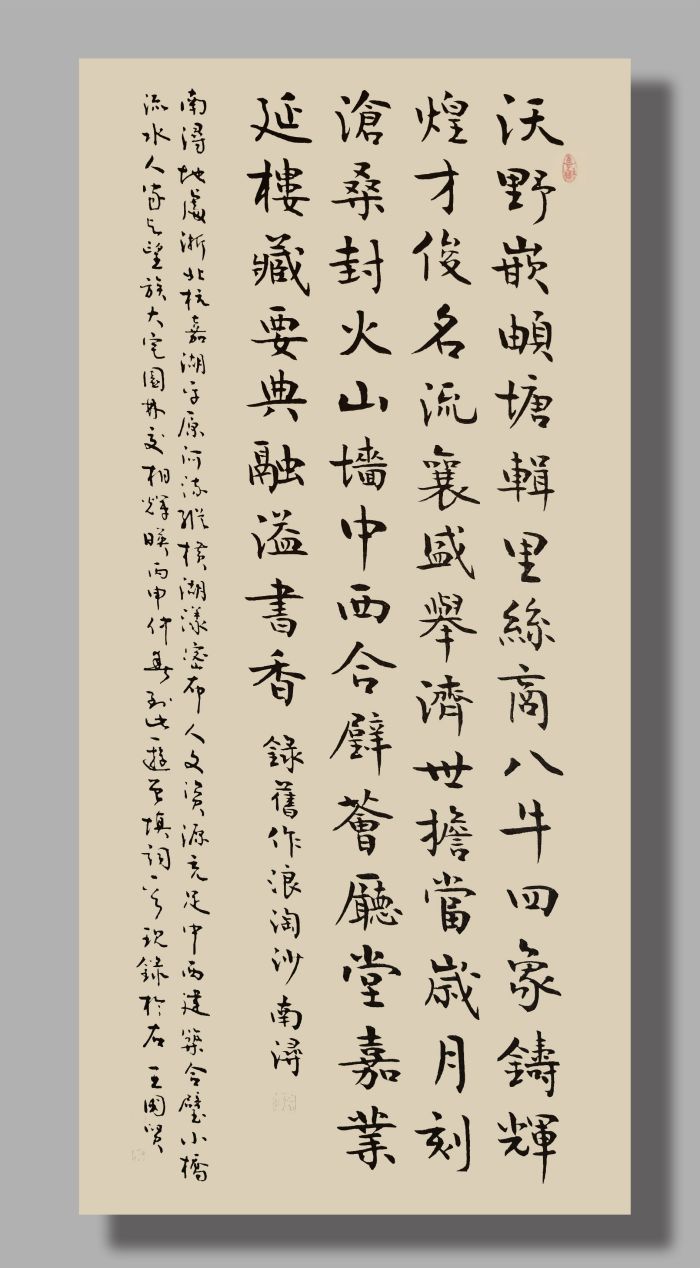 沃野嵌頔塘輯里絲商八牛四象鑄輝
煌才俊名流襄盛舉濟世擔當歲月刻
滄桑封火山墻中西合壁薈廳堂嘉業
延樓藏要典融溢書香 錄舊作浪淘沙南潯
南潯地處浙北杭嘉湖平原河流縱橫湖漾密布人文資源充足中西建築合璧小橋
流水人家与望族大宅園林交相輝映丙申仲春到此一遊曾填詞一首現錄於右王國賢